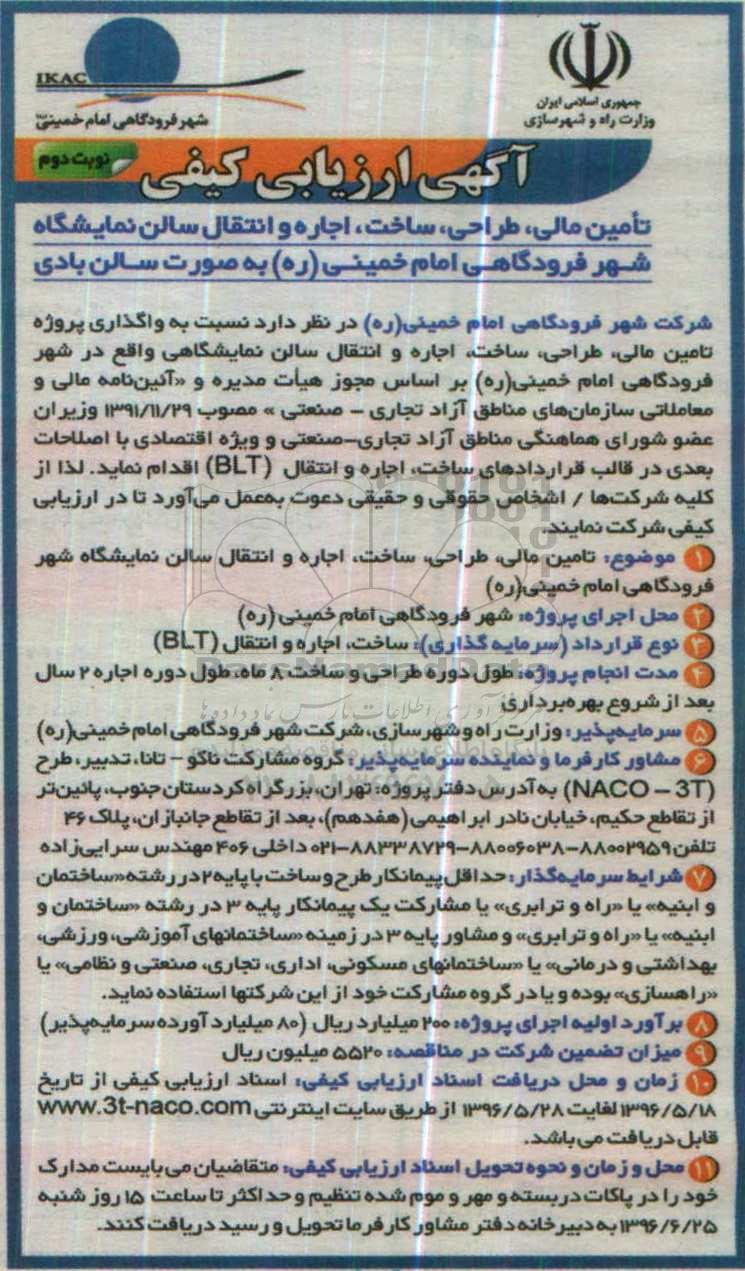 IKAC
شهر فرودگاهی امام خمینی
جمهوری اسلامی ایران
وزارت راه و شهرسازی
نوبت دوم
آگهی ارزیابی کیفی
تأمین مالی، طراحی، ساخت، اجاره و انتقال سالن نمایشگاه
شهر فرودگاهی امام خمینی (ره) به صورت سالن بادی
شرکت شهر فرودگاهی امام خمینی(ره) در نظر دارد نسبت به واگذاری پروژه
تامین مالی، طراحی، ساخت، اجاره و انتقال سالن نمایشگاهی واقع در شهر
فرودگاهی امام خمینی(ره) بر اساس مجوز هیأت مدیره و «آئین‌نامه مالی و
معاملاتی سازمان‌های مناطق آزاد تجاری – صنعتی » مصوب ۱۳۹۱/۱۱/۲۹ وزیران
عضو شورای هماهنگی مناطق آزاد تجاری–صنعتی و ویژه اقتصادی با اصلاحات
بعدی در قالب قراردادهای ساخت، اجاره و انتقال (BLT) اقدام نماید. لذا از
کلیه شرکت‌ها / اشخاص حقوقی و حقیقی دعوت به‌عمل می‌آورد تا در ارزیابی
کیفی شرکت نمایند.
۱ موضوع: تامین مالی، طراحی، ساخت، اجاره و انتقال سالن نمایشگاه شهر
فرودگاهی امام خمینی(ره)
۲ محل اجرای پروژه: شهر فرودگاهی امام خمینی (ره)
۳ نوع قرارداد (سرمایه گذاری): ساخت، اجاره و انتقال (BLT)
۴ مدت انجام پروژه: طول دوره طراحی و ساخت ۸ ماه، طول دوره اجاره ۲ سال
بعد از شروع بهره‌برداری
۵ سرمایه‌پذیر: وزارت راه و شهرسازی، شرکت شهر فرودگاهی امام خمینی(ره)
۶ مشاور کارفرما و نماینده سرمایه‌پذیر: گروه مشارکت ناکو – تانا، تدبیر، طرح
(NACO – 3T) به آدرس دفتر پروژه: تهران، بزرگراه کردستان جنوب، پائین‌تر
از تقاطع حکیم، خیابان نادر ابراهیمی (هفدهم)، بعد از تقاطع جانبازان، پلاک ۴۶
تلفن ۸۸۰۰۲۹۵۹–۸۸۰۰۶۰۳۸–۸۸۳۳۸۷۲۹–۰۲۱ داخلی ۴۰۶ مهندس سرایی‌زاده
۷ شرایط سرمایه‌گذار: حداقل پیمانکار طرح و ساخت با پایه ۲ در رشته «ساختمان
و ابنیه» یا «راه و ترابری» یا مشارکت یک پیمانکار پایه ۳ در رشته «ساختمان و
ابنیه» یا «راه و ترابری» و مشاور پایه ۳ در زمینه «ساختمانهای آموزشی، ورزشی،
بهداشتی و درمانی» یا «ساختمانهای مسکونی، اداری، تجاری، صنعتی و نظامی» یا
«راهسازی» بوده و یا در گروه مشارکت خود از این شرکتها استفاده نماید.
۸ برآورد اولیه اجرای پروژه: ۲۰۰ میلیارد ریال (۸۰ میلیارد آورده سرمایه‌پذیر)
۹ میزان تضمین شرکت در مناقصه: ۵۵۲۰ میلیون ریال
۱۰ زمان و محل دریافت اسناد ارزیابی کیفی: اسناد ارزیابی کیفی از تاریخ
۱۳۹۶/۵/۱۸ لغایت ۱۳۹۶/۵/۲۸ از طریق سایت اینترنتی www.3t-naco.com
قابل دریافت می باشد.
۱۱ محل و زمان و نحوه تحویل اسناد ارزیابی کیفی: متقاضیان می بایست مدارک
خود را در پاکات دربسته و مهر و موم شده تنظیم و حداکثر تا ساعت ۱۵ روز شنبه
۱۳۹۶/۶/۲۵ به دبیرخانه دفتر مشاور کارفرما تحویل و رسید دریافت کنند.